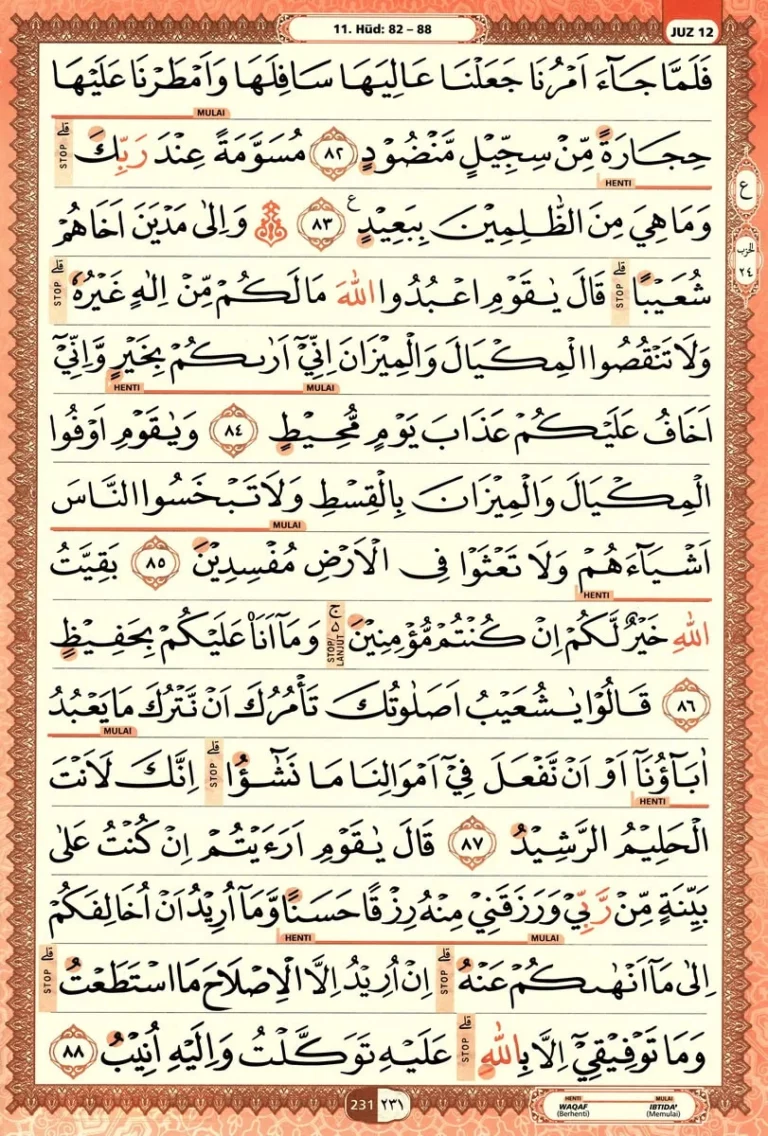 11. Hūd: 82 – 88
JUZ 12
فَلَمَّا جَاۤءَ اَمْرُنَا جَعَلْنَا عَالِيَهَا سَافِلَهَا وَاَمْطَرْنَا عَلَيْهَا
MULAI
حِجَارَةً مِّنْ سِجِّيْلٍ مَّنْضُوْدٍ ٨٢ مُسَوَّمَةً عِنْدَ رَبِّكَ ۗ STOP
HENTI
وَمَا هِيَ مِنَ الظّٰلِمِيْنَ بِبَعِيْدٍ ࣖ ٨٣ ۞ وَاِلٰى مَدْيَنَ اَخَاهُمْ
ع
الحزب ٢٤
شُعَيْبًا ۗ STOP قَالَ يٰقَوْمِ اعْبُدُوا اللّٰهَ مَا لَكُمْ مِّنْ اِلٰهٍ غَيْرُهٗ ۗ STOP
وَلَا تَنْقُصُوا الْمِكْيَالَ وَالْمِيْزَانَ اِنِّيْٓ اَرٰىكُمْ بِخَيْرٍ وَّاِنِّيْٓ
MULAI HENTI
اَخَافُ عَلَيْكُمْ عَذَابَ يَوْمٍ مُّحِيْطٍ ٨٤ وَيٰقَوْمِ اَوْفُوا
الْمِكْيَالَ وَالْمِيْزَانَ بِالْقِسْطِ وَلَا تَبْخَسُوا النَّاسَ
MULAI
اَشْيَاۤءَهُمْ وَلَا تَعْثَوْا فِى الْاَرْضِ مُفْسِدِيْنَ ٨٥ بَقِيَّتُ
HENTI
اللّٰهِ خَيْرٌ لَّكُمْ اِنْ كُنْتُمْ مُّؤْمِنِيْنَ ەۚ STOP/LANJUT وَمَآ اَنَا۠ عَلَيْكُمْ بِحَفِيْظٍ
٨٦ قَالُوْا يٰشُعَيْبُ اَصَلٰوتُكَ تَأْمُرُكَ اَنْ نَّتْرُكَ مَا يَعْبُدُ
MULAI
اٰبَاۤؤُنَآ اَوْ اَنْ نَّفْعَلَ فِيْٓ اَمْوَالِنَا مَا نَشٰۤؤُا ۗ STOP اِنَّكَ لَاَنْتَ
HENTI
الْحَلِيْمُ الرَّشِيْدُ ٨٧ قَالَ يٰقَوْمِ اَرَءَيْتُمْ اِنْ كُنْتُ عَلٰى
بَيِّنَةٍ مِّنْ رَّبِّيْ وَرَزَقَنِيْ مِنْهُ رِزْقًا حَسَنًا وَّمَآ اُرِيْدُ اَنْ اُخَالِفَكُمْ
MULAI HENTI
اِلٰى مَآ اَنْهٰىكُمْ عَنْهُ ۗ STOP اِنْ اُرِيْدُ اِلَّا الْاِصْلَاحَ مَا اسْتَطَعْتُ ۗ STOP
وَمَا تَوْفِيْقِيْٓ اِلَّا بِاللّٰهِ ۗ STOP عَلَيْهِ تَوَكَّلْتُ وَاِلَيْهِ اُنِيْبُ ٨٨
231 ٢٣١
HENTI MULAI
WAQAF IBTIDA'
(Berhenti) (Memulai)